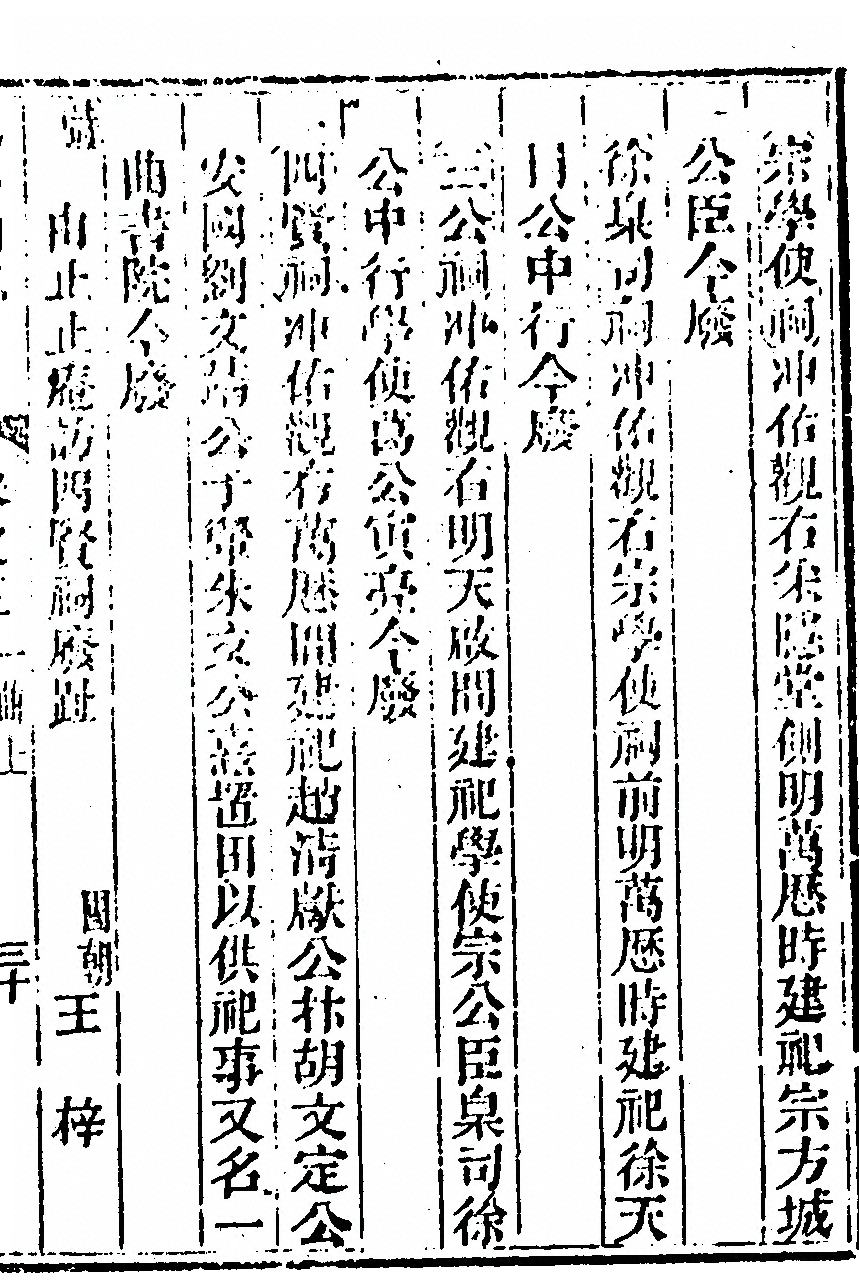 宗學使祠冲佑觀右朱臨堂側明萬厯時建祀宗方城
公臣今廢
徐臬司祠冲佑觀右宗學使祠前明萬厯時建祀徐天
目公中行今廢
三公祠冲佑觀右明天啟間建祀學使宗公臣臬司徐
公中行學使葛公寅亮今廢
四賢祠冲佑觀右萬厯間建祀趙清獻公抃胡文定公
安國劉文靖公子翬朱文公熹置田以供祀事又名一
曲書院今廢
由止止庵訪四賢祠廢趾 國朝王 梓
一曲上
三十